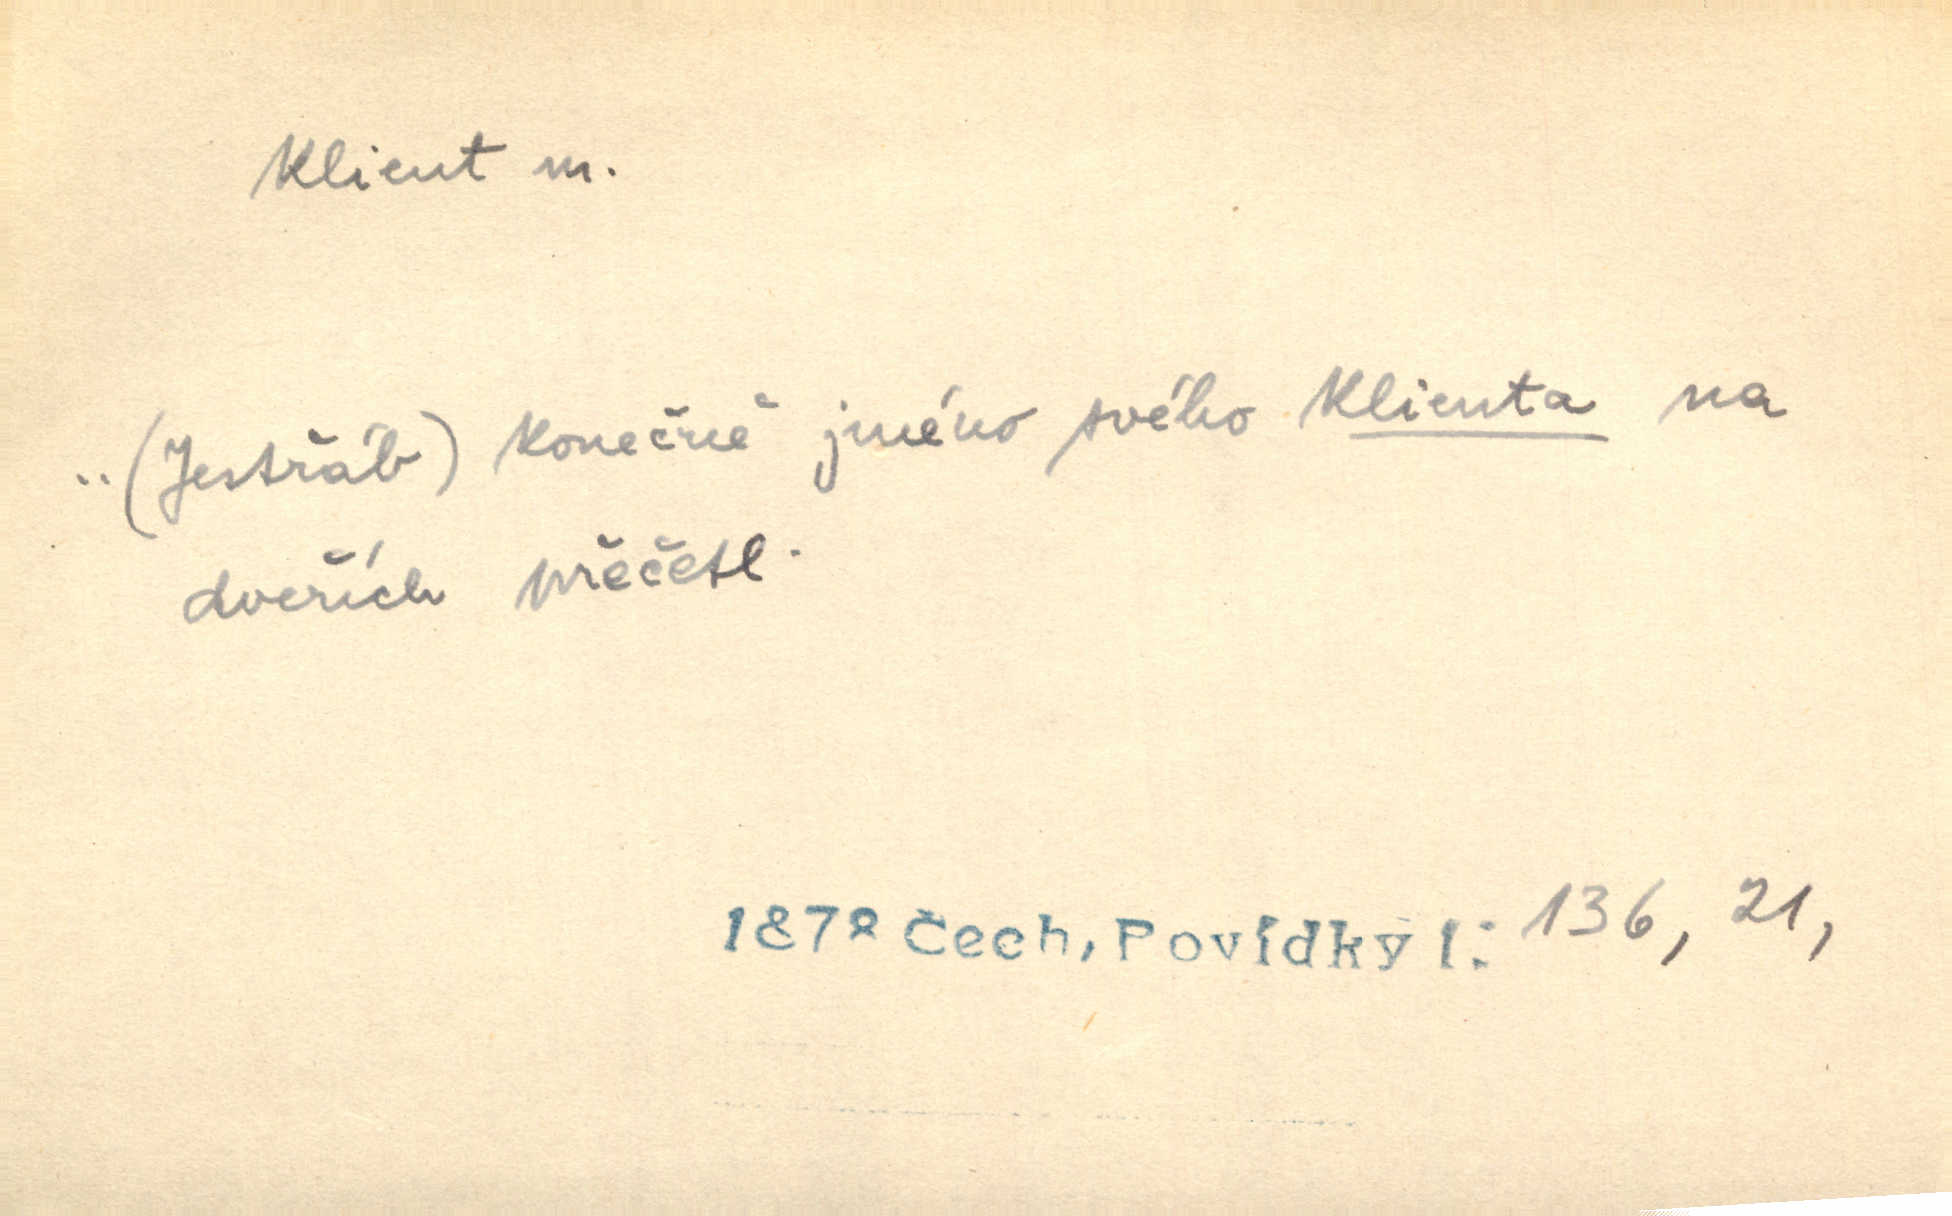 Klient m.
..(Jestřáb) konečně jméno svého klienta na
dveřích přečetl.
1878 Čech, Povídky I: 136, 21,